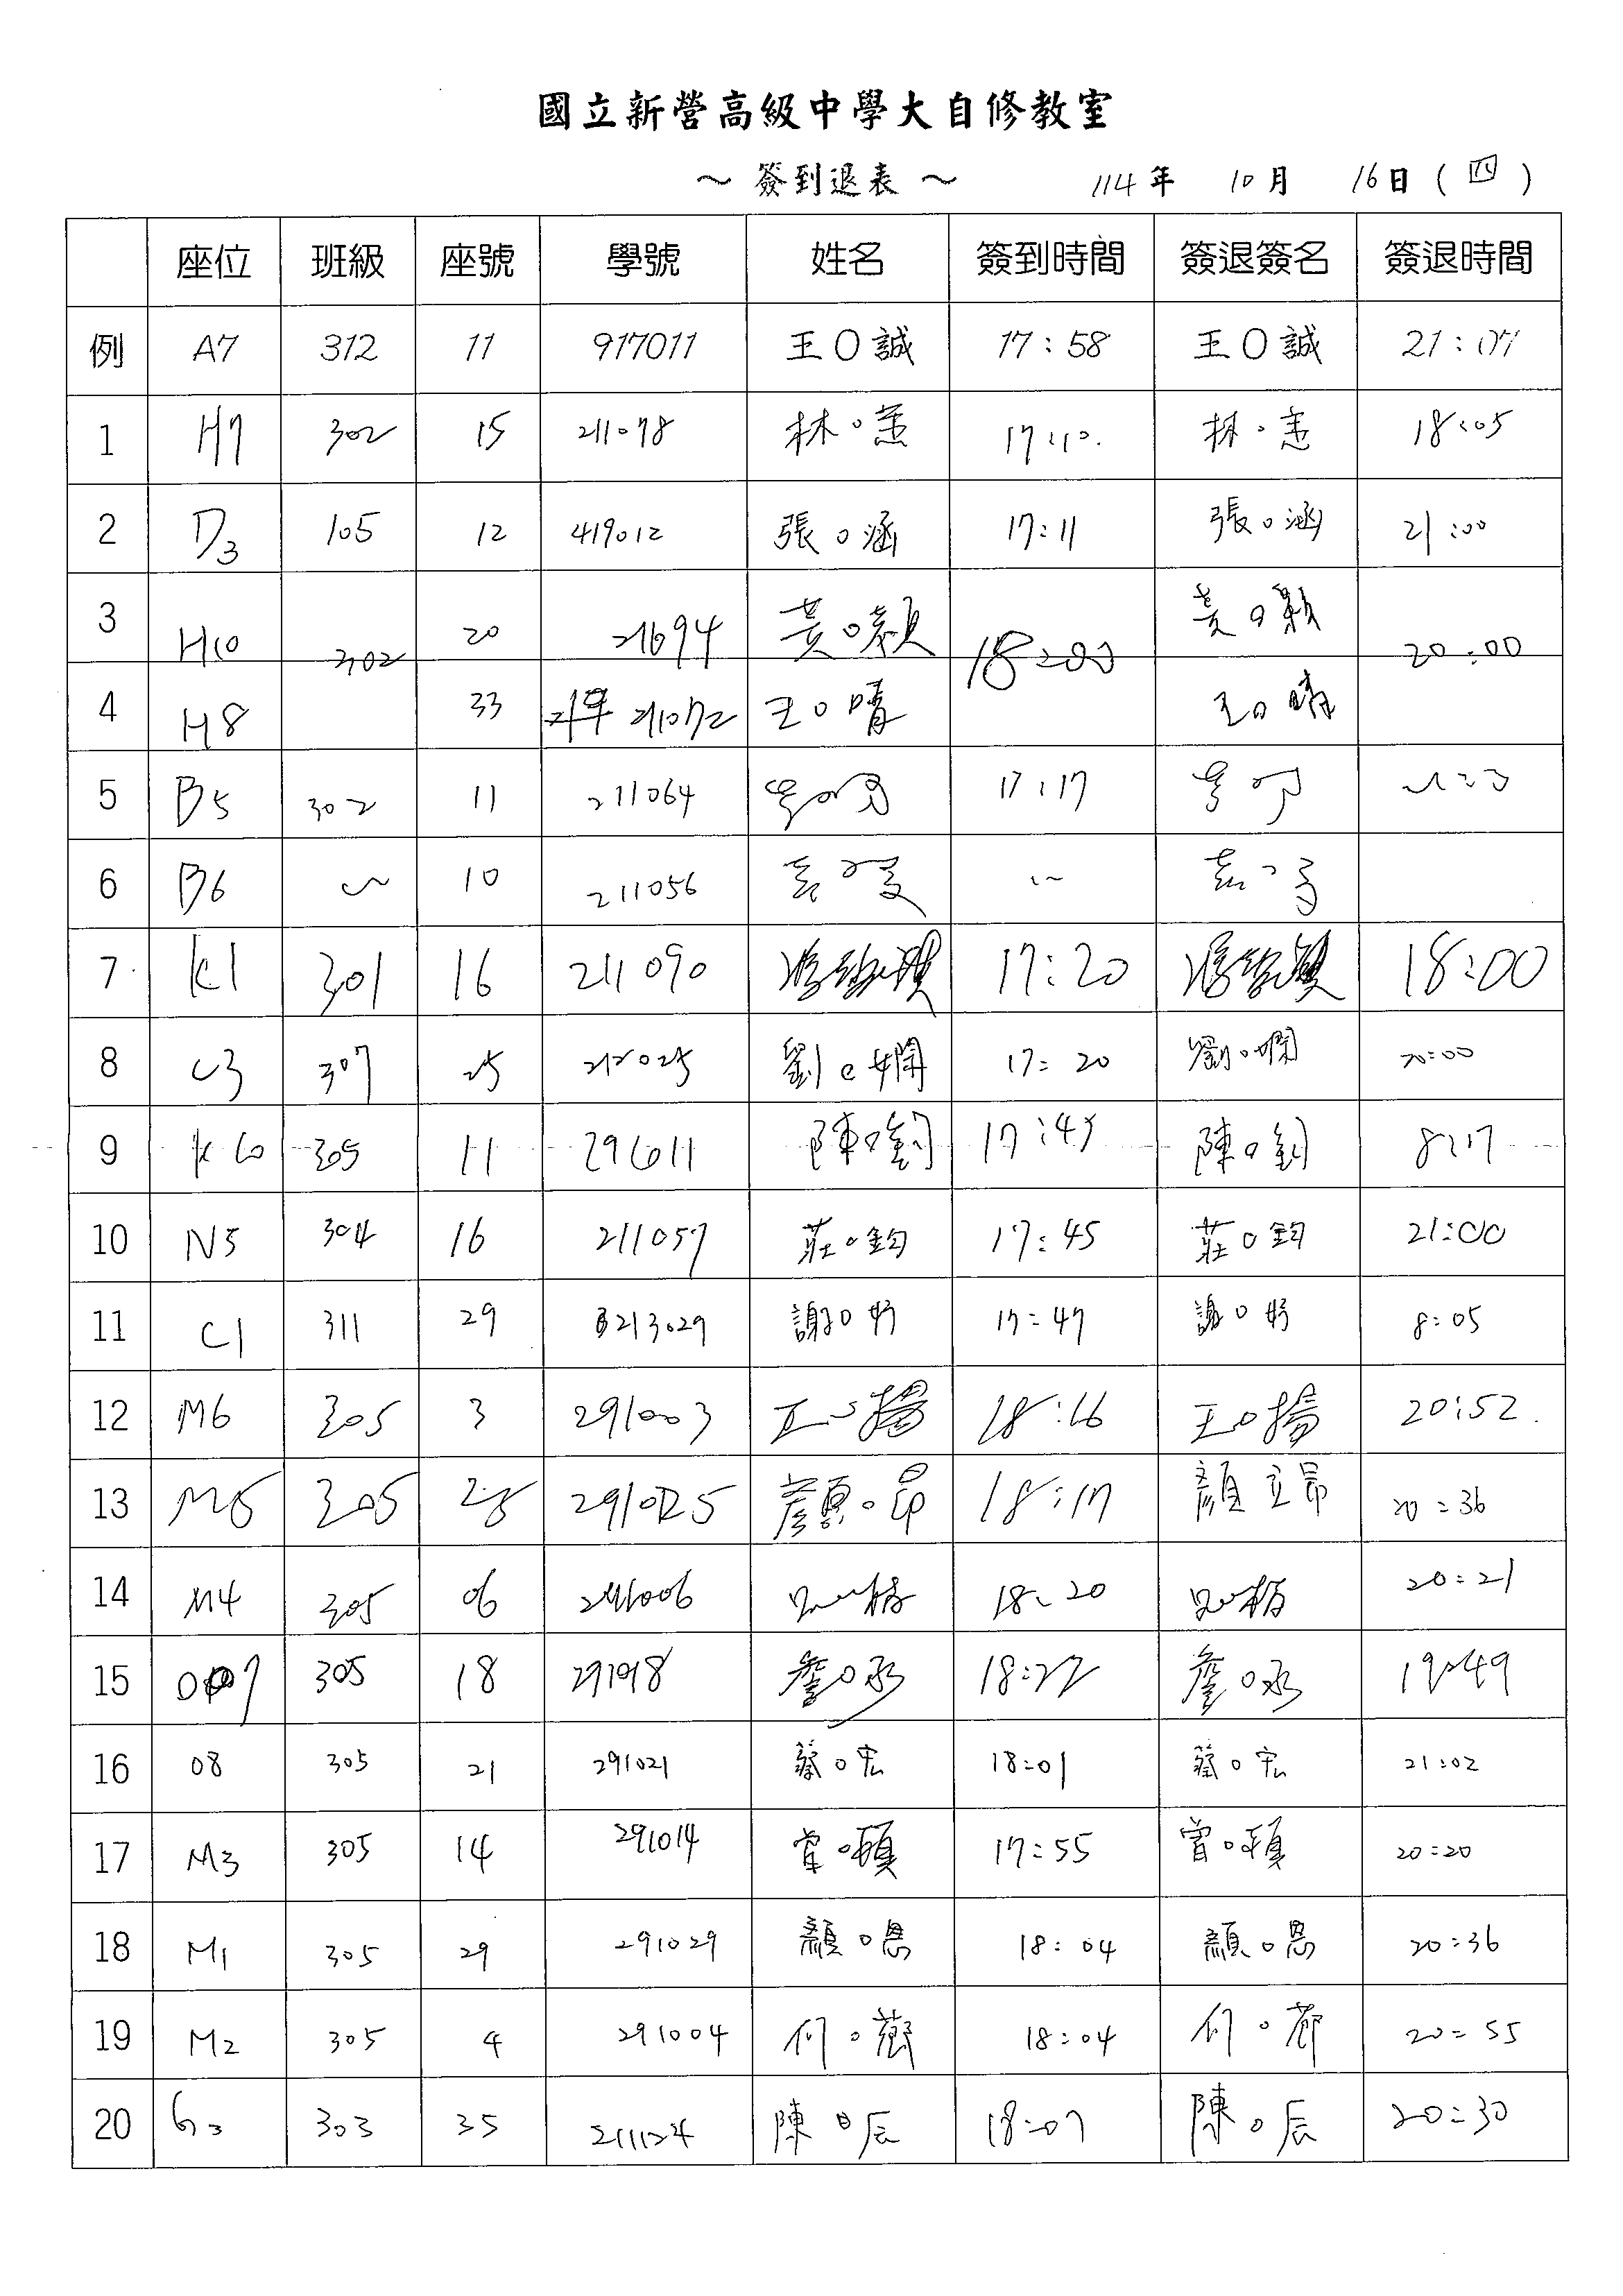 國立新營高級中學大自修教室
～ 簽到退表 ～ 114年 10月 16日 ( 四 )
座位 班級 座號 學號 姓名 簽到時間 簽退簽名 簽退時間
例 A7 312 11 917011 王〇誠 17:58 王〇誠 21:07
1 H7 302 15 211078 林〇 17:10. 林〇 18:05
2 D3 105 12 419012 張〇涵 17:11 張〇涵 21:00
3 H10 302 20 21694 黃〇穎 18:00 黃〇穎 20:00
4 H8 33 211072 王〇晴 王〇晴
5 B5 302 11 211064 17:17
6 B6 〜 10 211056 袁〇 〜 袁〇
7 K1 301 16 211090 17:20 18:00
8 C3 307 25 212025 劉〇嫻 17:20 劉〇嫻 20:00
9 K10 305 11 296011 陳〇釗 17:45 陳〇釗 8:17
10 N5 304 16 211057 莊〇鈞 17:45 莊〇鈞 21:00
11 C1 311 29 213029 謝〇妤 17:47 謝〇妤 8:05
12 M6 305 3 291003 王〇揚 18:16 王〇揚 20:52
13 M5 305 25 291025 顏〇昂 18:17 顏立昂 20:36
14 M4 305 06 291006 18:20 20:21
15 O7 305 18 291018 詹〇丞 18:22 詹〇丞 19:49
16 O8 305 21 291021 蔡〇宏 18:01 蔡〇宏 21:02
17 M3 305 14 291014 曾〇頤 17:55 曾〇頤 20:20
18 M1 305 29 291029 顏〇恩 18:04 顏〇恩 20:36
19 M2 305 4 291004 何〇 18:04 何〇 20:55
20 G3 303 35 211124 陳〇辰 18:07 陳〇辰 20:30